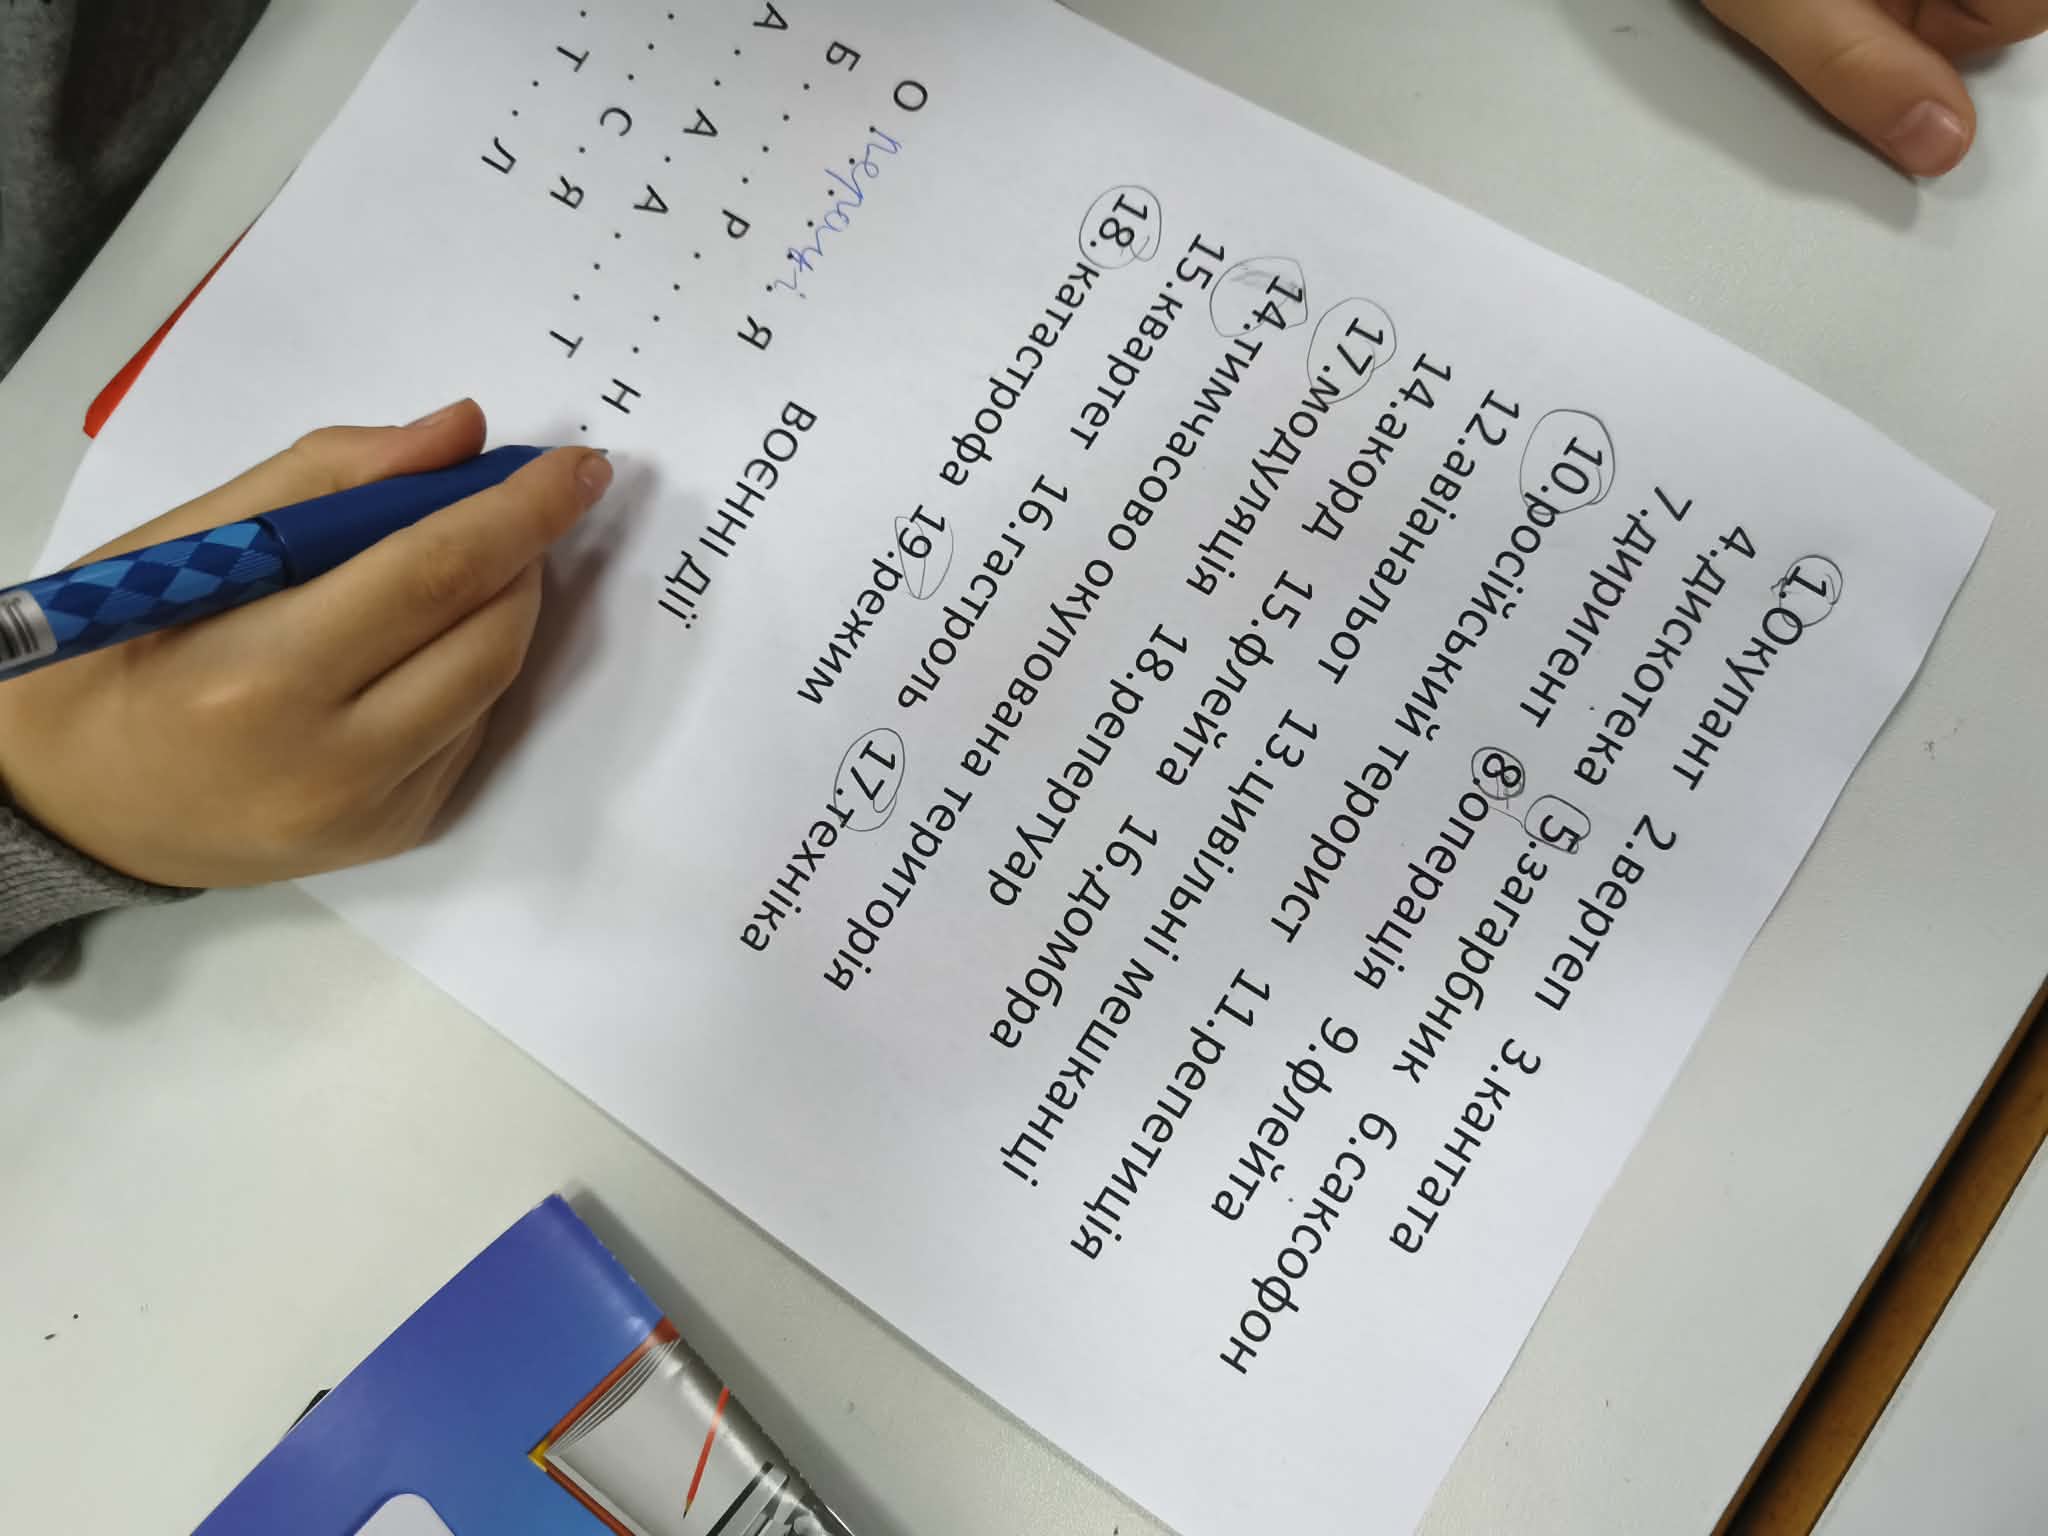 1.Окупант 2.вертеп 3.кантата
4.дискотека 5.загарбник 6.саксофон
7.диригент 8.операція 9.флейта
10.російський терорист 11.репетиція
12.авіанальот 13.цивільні мешканці
14.акорд 15.флейта 16.домбра
17.модуляція 18.репертуар
14.тимчасово окупована територія
15.квартет 16.гастроль 17.техніка
18.катастрофа 19.режим
ВОЄННІ ДІЇ
О пераці Я
Б . . . . Р . . . . Н .
А . . А . А . . . Т
. . . С . Я
. Т . . Л